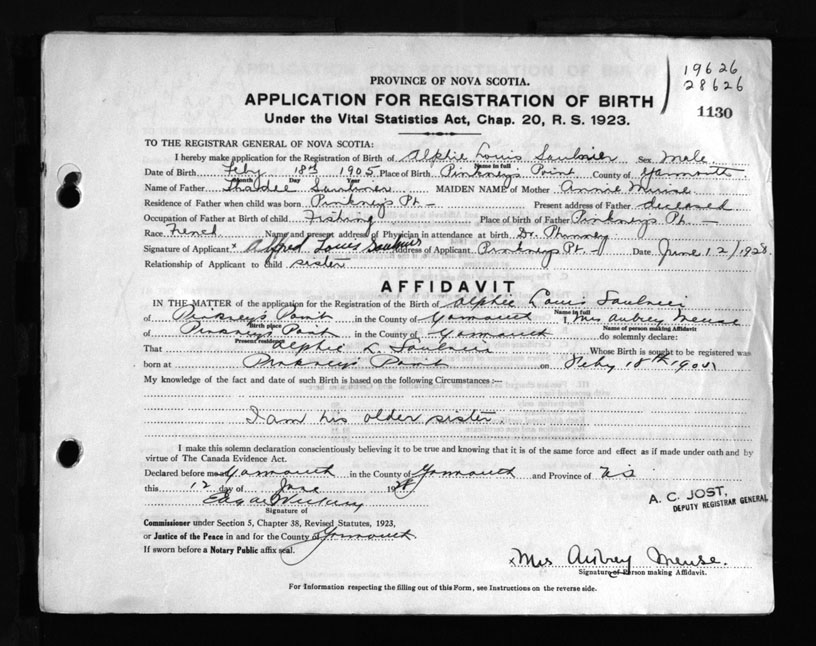 19626
28626
1130
PROVINCE OF NOVA SCOTIA.
APPLICATION FOR REGISTRATION OF BIRTH
Under the Vital Statistics Act, Chap. 20, R. S. 1923.
TO THE REGISTRAR GENERAL OF NOVA SCOTIA:
I hereby make application for the Registration of Birth of Alphie Louis Saulnier Sex Male
Name in full
Date of Birth Feby 18th 1905 Place of Birth Pinkneys Point County of Yarmouth
Month Day Year
Name of Father Saulnier MAIDEN NAME of Mother Annie
Residence of Father when child was born Pinkney's Pt. Present address of Father deceased
Occupation of Father at Birth of child Fishing Place of birth of Father Pinkneys Pt.
Race French Name and present address of Physician in attendance at birth Dr. Phinney
Signature of Applicant x Alfred Louis Saulnier Address of Applicant Pinkneys Pt. Date June 12/1928.
Relationship of Applicant to child sister
AFFIDAVIT
IN THE MATTER of the application for the Registration of the Birth of Alphie Louis Saulnier
Name in full
of Pinkney's Point in the County of Yarmouth I, Mrs Aubrey Meuse
Birth place Name of person making Affidavit
of Pinkney's Point in the County of Yarmouth do solemnly declare:
Present residence
That Alphie L. Saulnier Whose Birth is sought to be registered was
born at Pinkney's Point on Feby 18th 1905
My knowledge of the fact and date of such Birth is based on the following Circumstances :—
I am his older sister.
I make this solemn declaration conscientiously believing it to be true and knowing that it is of the same force and effect as if made under oath and by
virtue of The Canada Evidence Act.
Declared before me at Yarmouth in the County of Yarmouth and Province of N.S.
this 12 day of June 1928
Edgar
Signature of
A. C. JOST,
DEPUTY REGISTRAR GENERAL
Commissioner under Section 5, Chapter 38, Revised Statutes, 1923,
or Justice of the Peace in and for the County of Yarmouth
If sworn before a Notary Public affix seal.
x Mrs Aubrey Meuse.
Signature of Person making Affidavit.
For Information respecting the filling out of this Form, see Instructions on the reverse side.